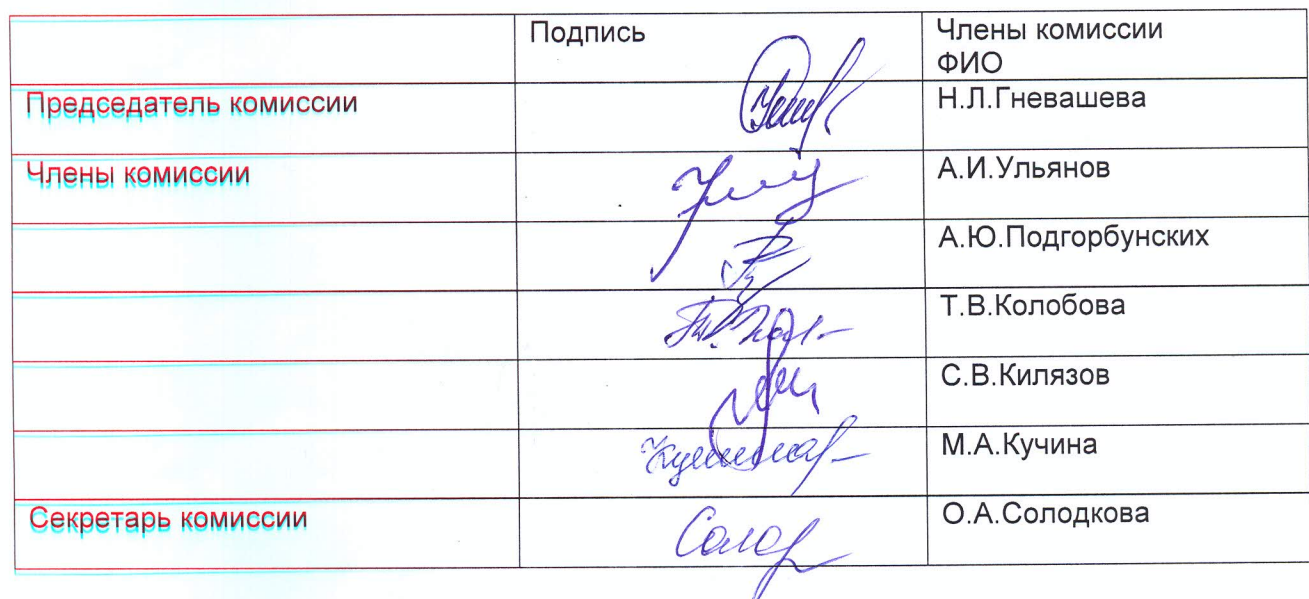 Подпись
Члены комиссии
ФИО
Председатель комиссии
Н.Л.Гневашева
Члены комиссии
А.И.Ульянов
А.Ю.Подгорбунских
Т.В.Колобова
С.В.Килязов
М.А.Кучина
Секретарь комиссии
О.А.Солодкова